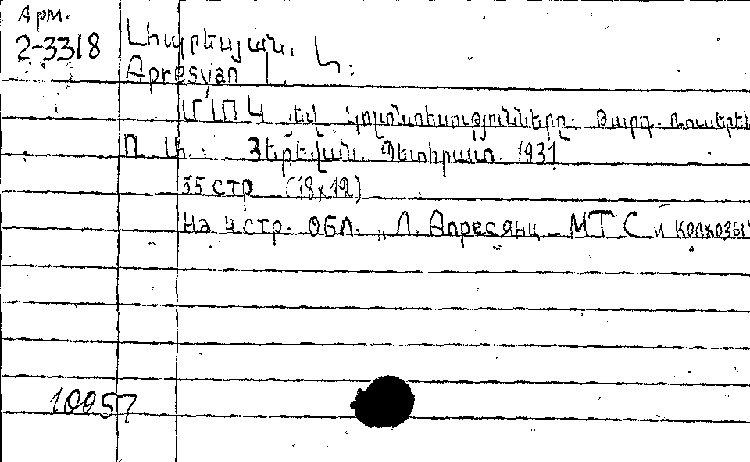 Арм.
2-3318
Ապրեսյան. Լ.
Apresyan L.
ՄՏԿ եվ կոլտնտեսությունները. Թարգ. ռուսերեն
Յերեվան. Պետհրատ. 1931
55 стр (18x12)
На 4 стр. обл. „Л. Апресянц - МТС и колхозы"
10057